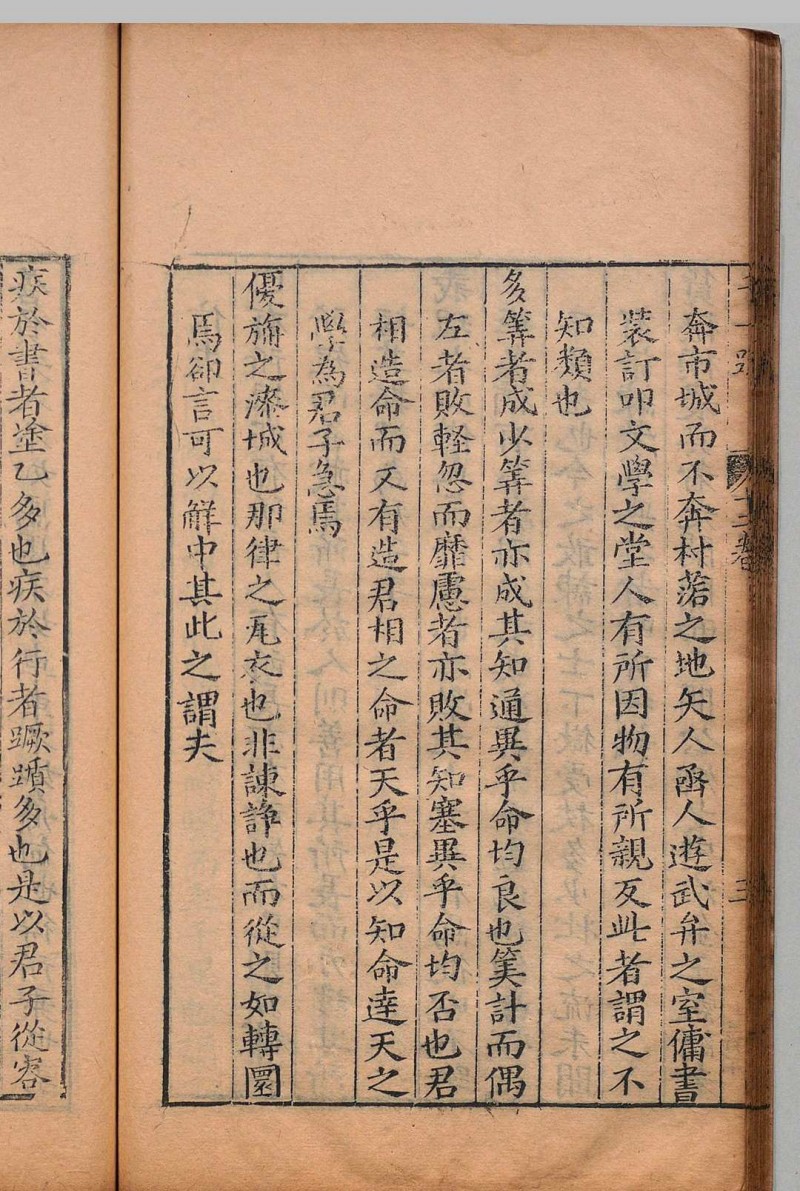 奔市城而不奔村落之地矢人函人遊武弁之室傭書
裝訂叩文學之堂人有所因物有所親反此者謂之不
知類也
多筭者成少筭者亦成其知通異乎命均良也筭計而偶
左者敗輕忽而靡慮者亦敗其知塞異乎命均否也君
相造命而又有造君相之命者天乎是以知命達天之
學為君子急焉
優旃之漆城也那律之瓦衣也非諫諍也而從之如轉圜
焉卻言可以解中其此之謂夫
疾於書者塗乙多也疾於行者蹶躓多也是以君子從容